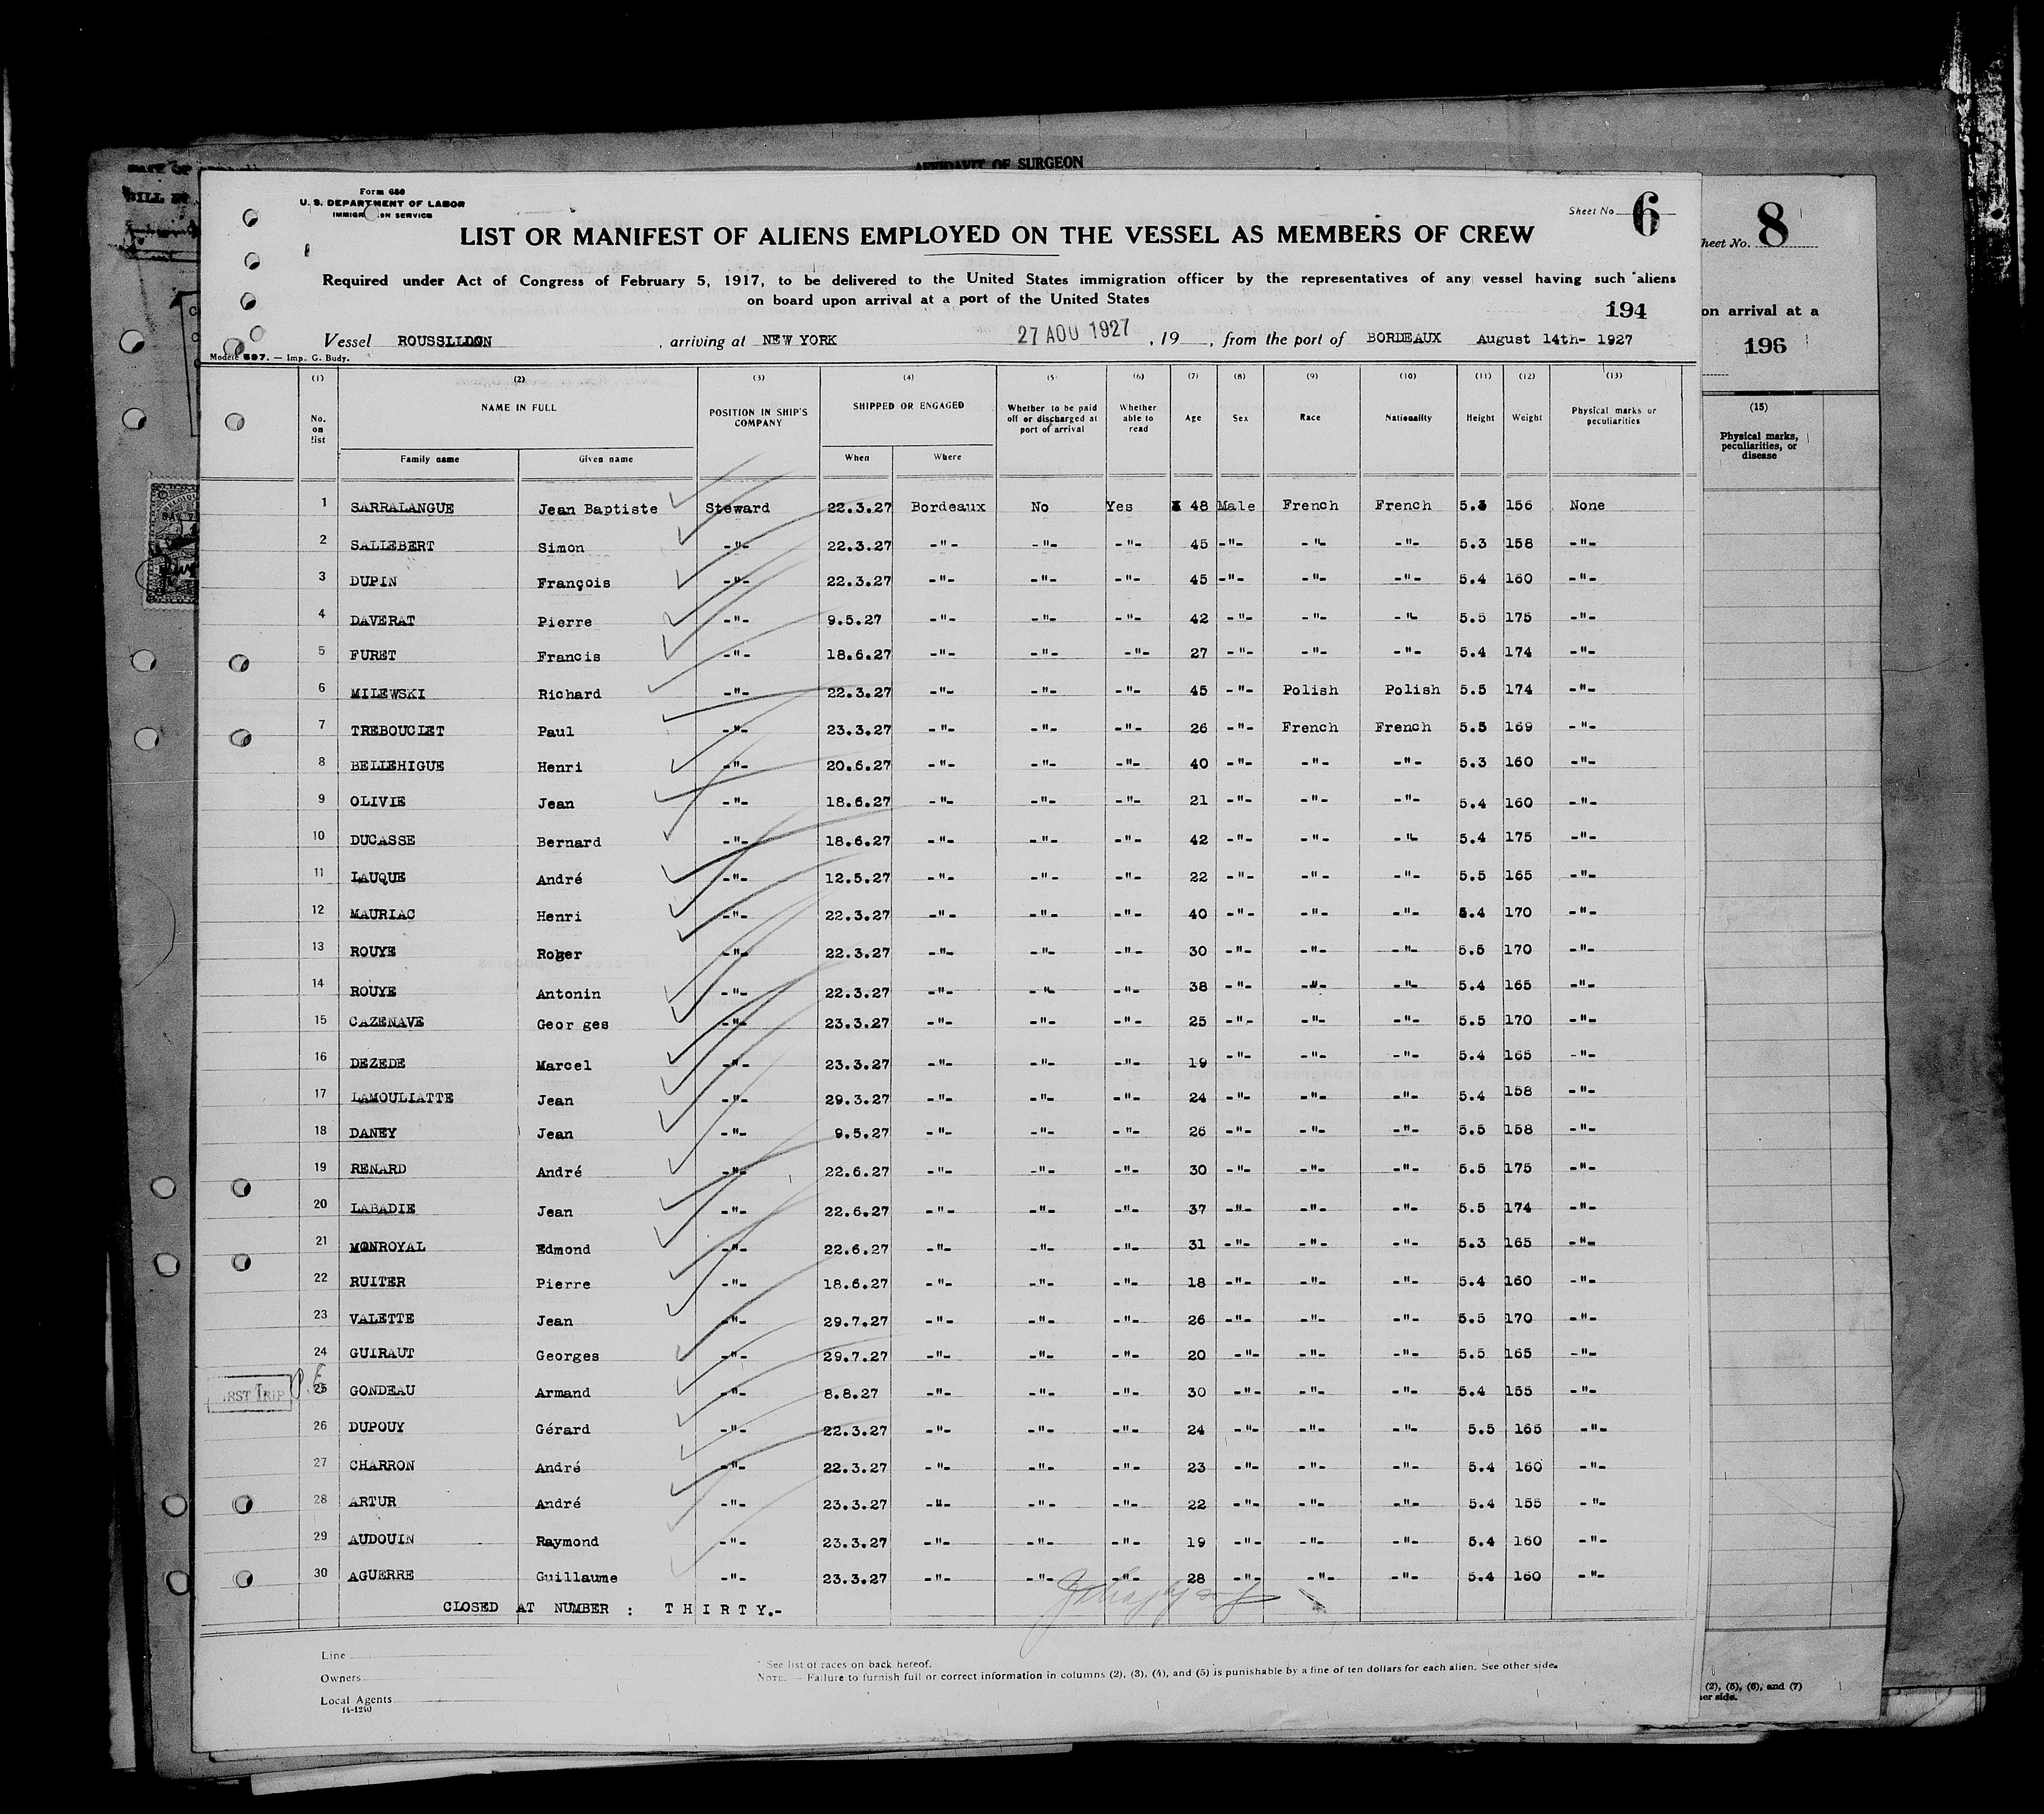 AFFIDAVIT OF SURGEON
Form 680
U. S. DEPARTMENT OF LABOR
IMMIGRATION SERVICE
Sheet No 6
LIST OR MANIFEST OF ALIENS EMPLOYED ON THE VESSEL AS MEMBERS OF CREW
Required under Act of Congress of February 5, 1917, to be delivered to the United States immigration officer by the representatives of any vessel having such aliens
on board upon arrival at a port of the United States
194
Vessel ROUSSILLON , arriving at NEW YORK 27 AOU 1927 , 19 , from the port of BORDEAUX August 14th- 1927
Modèle 697. — Imp. G. Budy.
(1) (2) (3) (4) (5) (6) (7) (8) (9) (10) (11) (12) (13)
No. on list NAME IN FULL POSITION IN SHIP'S COMPANY SHIPPED OR ENGAGED Whether to be paid off or discharged at port of arrival Whether able to read Age Sex Race Nationality Height Weight Physical marks or peculiarities
Family name Given name When Where
1 SARRALANGUE Jean Baptiste Steward 22.3.27 Bordeaux No Yes 48 Male French French 5.3 156 None
2 SALLEBERT Simon -"- 22.3.27 -"- -"- -"- 45 -"- -"- -"- 5.3 158 -"-
3 DUPIN François -"- 22.3.27 -"- -"- -"- 45 -"- -"- -"- 5.4 160 -"-
4 DAVERAT Pierre -"- 9.5.27 -"- -"- -"- 42 -"- -"- -"- 5.5 175 -"-
5 FURET Francis -"- 18.6.27 -"- -"- -"- 27 -"- -"- -"- 5.4 174 -"-
6 MILEWSKI Richard -"- 22.3.27 -"- -"- -"- 45 -"- Polish Polish 5.5 174 -"-
7 TREBOUCLET Paul -"- 23.3.27 -"- -"- -"- 26 -"- French French 5.5 169 -"-
8 BELLEHIGUE Henri -"- 20.6.27 -"- -"- -"- 40 -"- -"- -"- 5.3 160 -"-
9 OLIVIE Jean -"- 18.6.27 -"- -"- -"- 21 -"- -"- -"- 5.4 160 -"-
10 DUCASSE Bernard -"- 18.6.27 -"- -"- -"- 42 -"- -"- -"- 5.4 175 -"-
11 LAUQUE André -"- 12.5.27 -"- -"- -"- 22 -"- -"- -"- 5.5 165 -"-
12 MAURIAC Henri -"- 22.3.27 -"- -"- -"- 40 -"- -"- -"- 5.4 170 -"-
13 ROUYE Roger -"- 22.3.27 -"- -"- -"- 30 -"- -"- -"- 5.5 170 -"-
14 ROUYE Antonin -"- 22.3.27 -"- -"- -"- 38 -"- -"- -"- 5.4 165 -"-
15 CAZENAVE Geor ges -"- 23.3.27 -"- -"- -"- 25 -"- -"- -"- 5.5 170 -"-
16 DEZEDE Marcel -"- 23.3.27 -"- -"- -"- 19 -"- -"- -"- 5.4 165 -"-
17 LAMOULIATTE Jean -"- 29.3.27 -"- -"- -"- 24 -"- -"- -"- 5.4 158 -"-
18 DANEY Jean -"- 9.5.27 -"- -"- -"- 26 -"- -"- -"- 5.5 158 -"-
19 RENARD André -"- 22.6.27 -"- -"- -"- 30 -"- -"- -"- 5.5 175 -"-
20 LABADIE Jean -"- 22.6.27 -"- -"- -"- 37 -"- -"- -"- 5.5 174 -"-
21 MONROYAL Edmond -"- 22.6.27 -"- -"- -"- 31 -"- -"- -"- 5.3 165 -"-
22 RUITER Pierre -"- 18.6.27 -"- -"- -"- 18 -"- -"- -"- 5.4 160 -"-
23 VALETTE Jean -"- 29.7.27 -"- -"- -"- 26 -"- -"- -"- 5.5 170 -"-
24 GUIRAUT Georges -"- 29.7.27 -"- -"- -"- 20 -"- -"- -"- 5.5 165 -"-
IRST TRIP 25 GONDEAU Armand -"- 8.8.27 -"- -"- -"- 30 -"- -"- -"- 5.4 155 -"-
26 DUPOUY Gérard -"- 22.3.27 -"- -"- -"- 24 -"- -"- -"- 5.5 165 -"-
27 CHARRON André -"- 22.3.27 -"- -"- -"- 23 -"- -"- -"- 5.4 160 -"-
28 ARTUR André -"- 23.3.27 -"- -"- -"- 22 -"- -"- -"- 5.4 155 -"-
29 AUDOUIN Raymond -"- 23.3.27 -"- -"- -"- 19 -"- -"- -"- 5.4 160 -"-
30 AGUERRE Guillaume -"- 23.3.27 -"- -"- -"- 28 -"- -"- -"- 5.4 160 -"-
CLOSED AT NUMBER : T H I R T Y.-
Line
Owners
Local Agents
14-1240
* See list of races on back hereof.
NOTE. — Failure to furnish full or correct information in columns (2), (3), (4), and (5) is punishable by a fine of ten dollars for each alien. See other side.
heet No. 8
on arrival at a
196
(15)
Physical marks, peculiarities, or disease
(2), (5), (6), and (7)
er side.